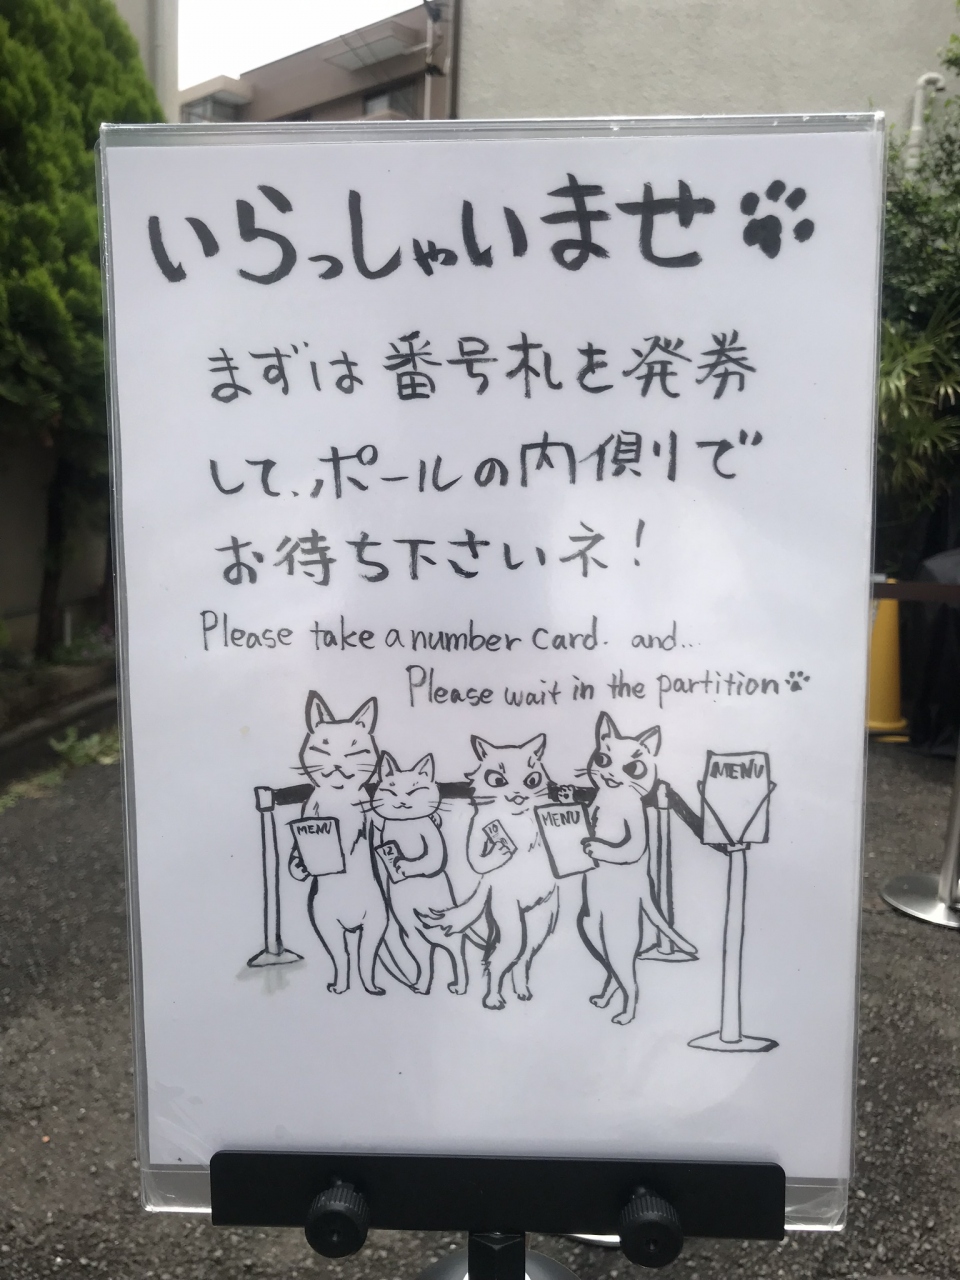 いらっしゃいませ
まずは番号札を発券
して、ポールの内側りで
お待ち下さいネ!
Please take a number card. and...
Please wait in the partition
MENU
MENU
MENU
12
10